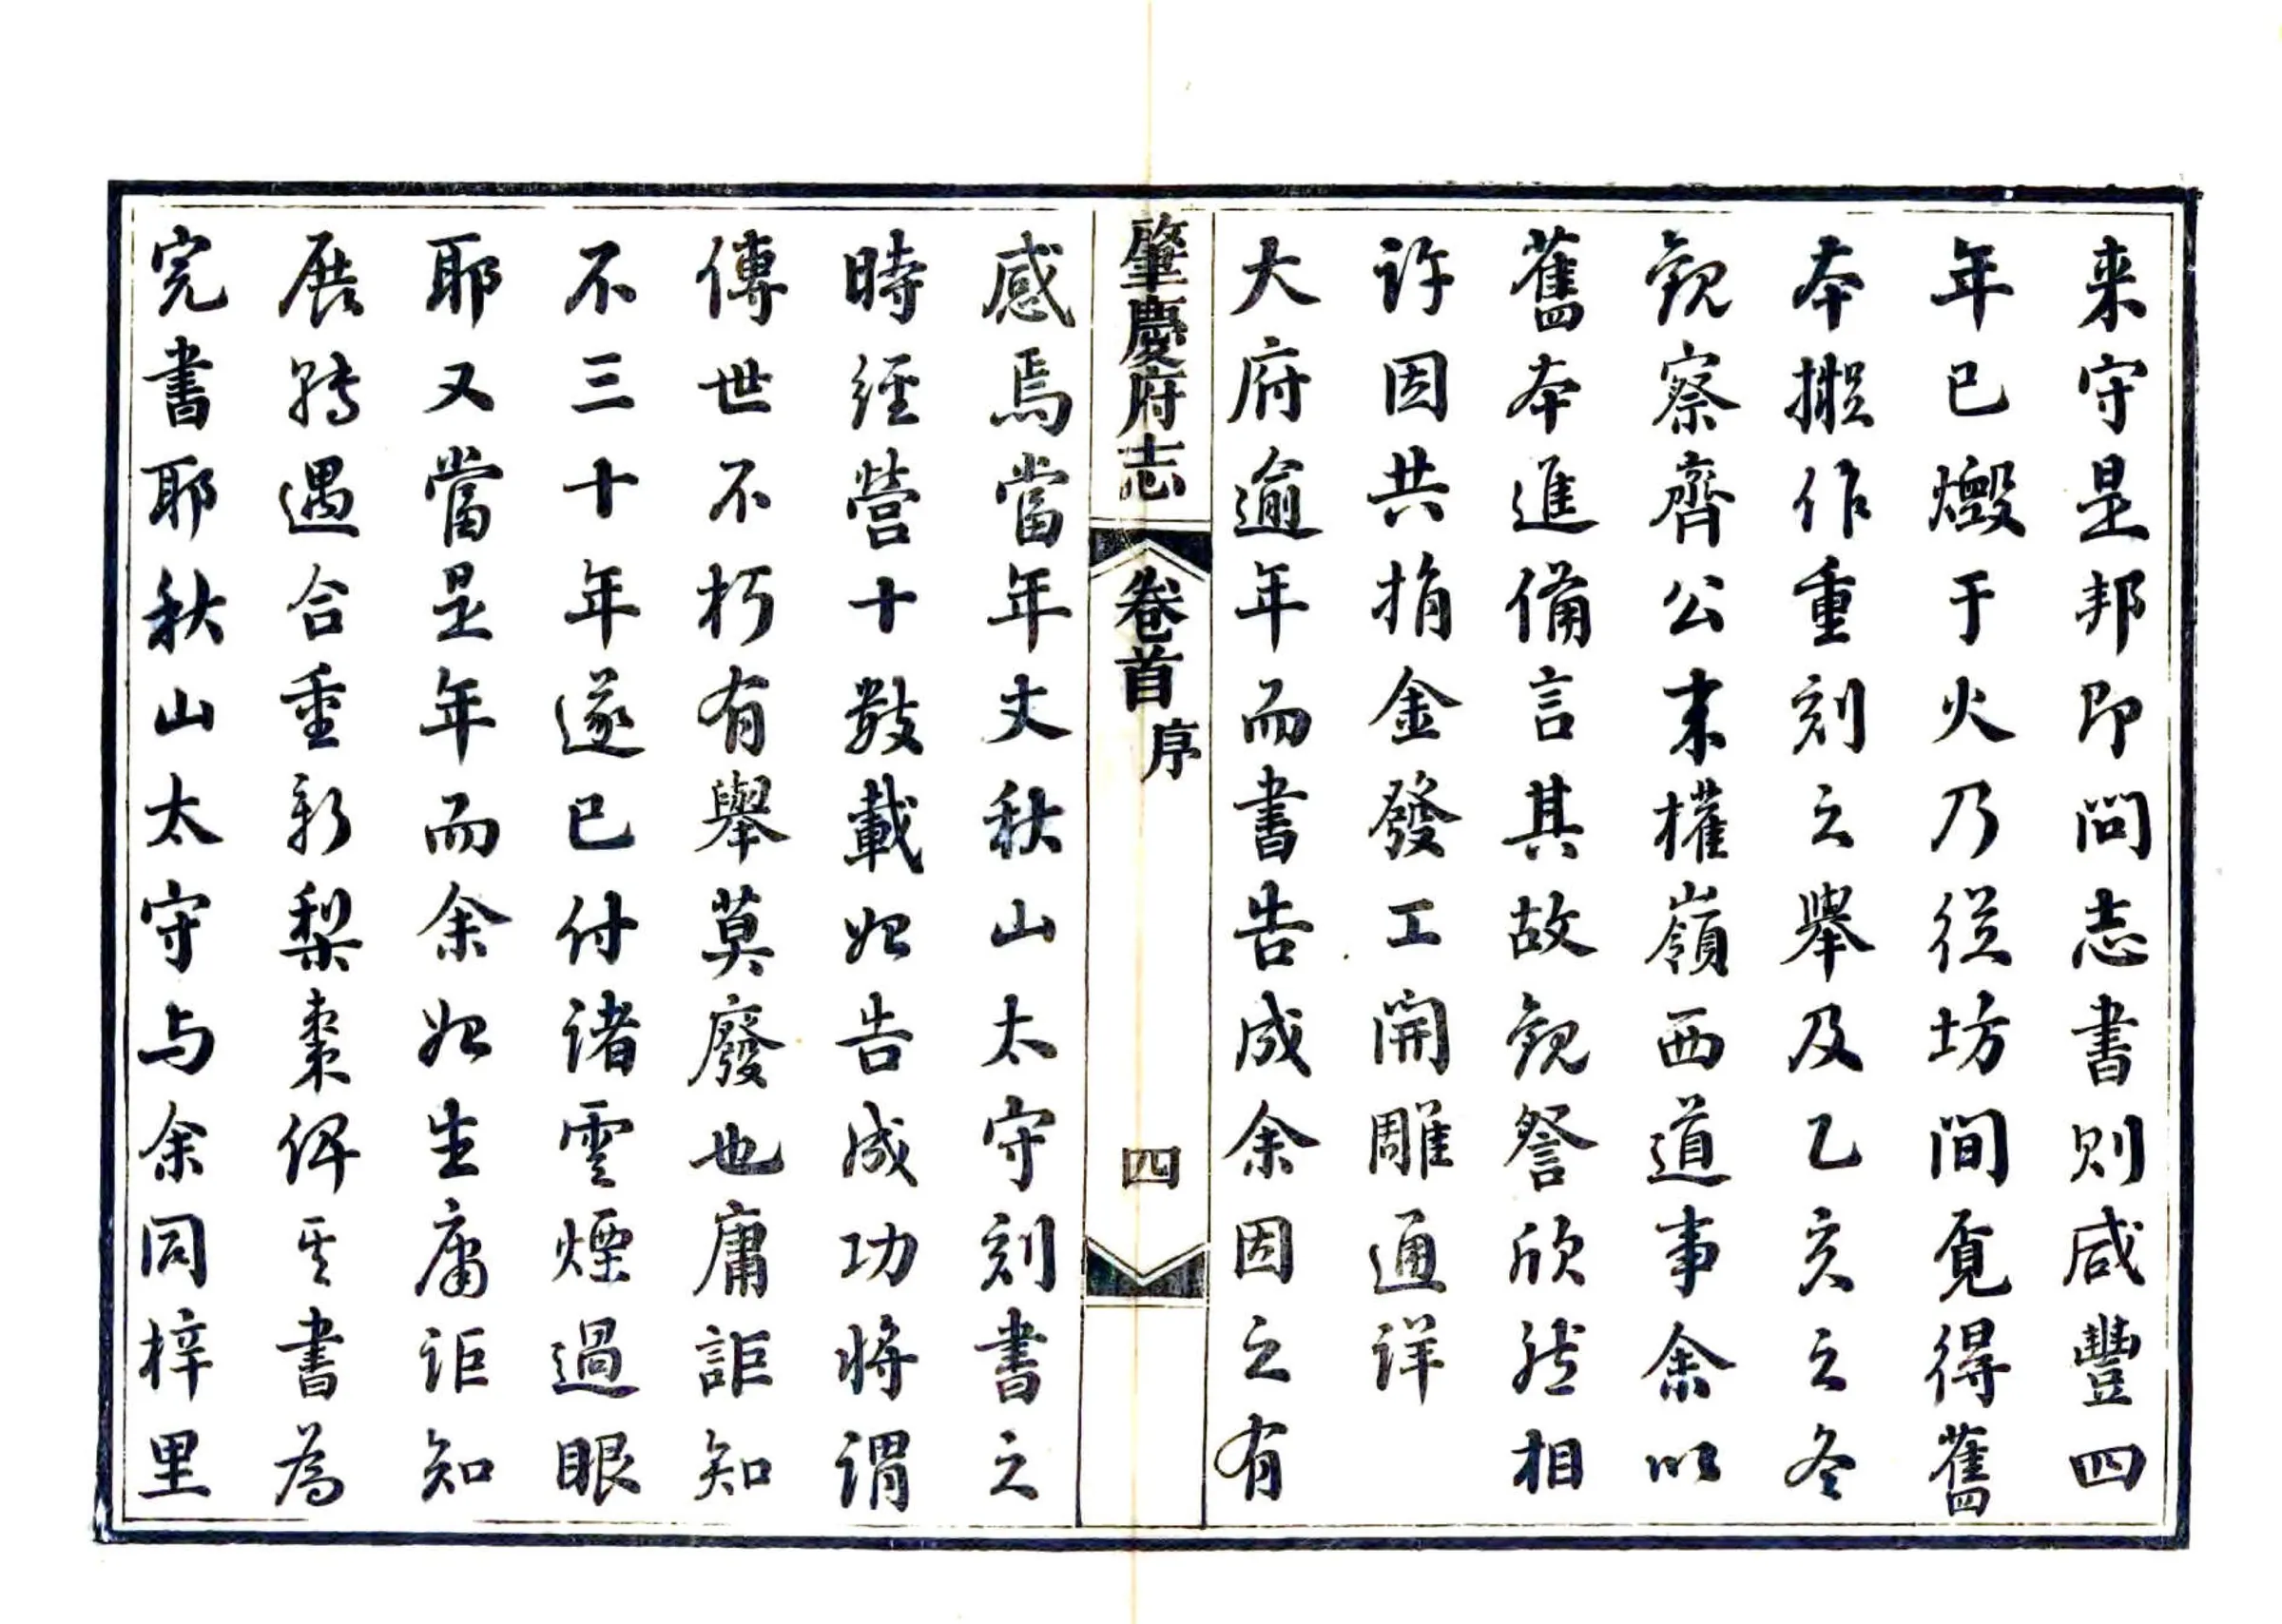 来守是邦即問志書則咸豐四
年已燬于火乃從坊間覓得舊
本擬作重刻之舉及乙亥之冬
觀察齊公來權嶺西道事余以
舊本進備言其故觀詧欣然相
許因共捐金發工開雕通詳
大府逾年而書告成余因之有
肇慶府志
卷首
序
四
感焉當年丈秋山太守刻書之
時經營十數載始告成功將謂
傳世不朽有舉莫廢也庸詎知
不三十年遂已付諸雲煙過眼
耶又當是年而余始生庸詎知
展轉遇合重新梨棗俾其書為
完書耶秋山太守与余同梓里